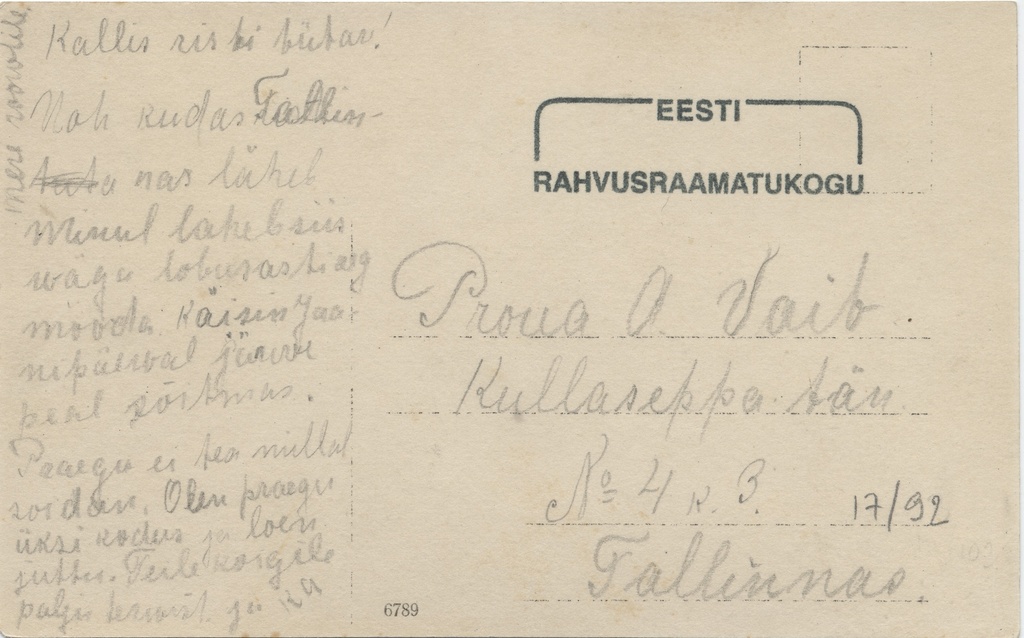 Kallis risti tütar!
Noh kudas Tallin-
nas läheb
Minul laheb siis
wäga lobusasti aeg
mööda. Käisin Jaa-
nipäewal järwe
peal sõitmas.
Praegu ei tea millal
soidan. Olen praegu
üksi kodus ja loen
juttu. Teile koigile
palju terwist ja ka
mere
EESTI
RAHVUSRAAMATUKOGU
Proua A Vaib.
Kullaseppa tän.
No 4 k. 3.
17/92
Tallinnas.
6789